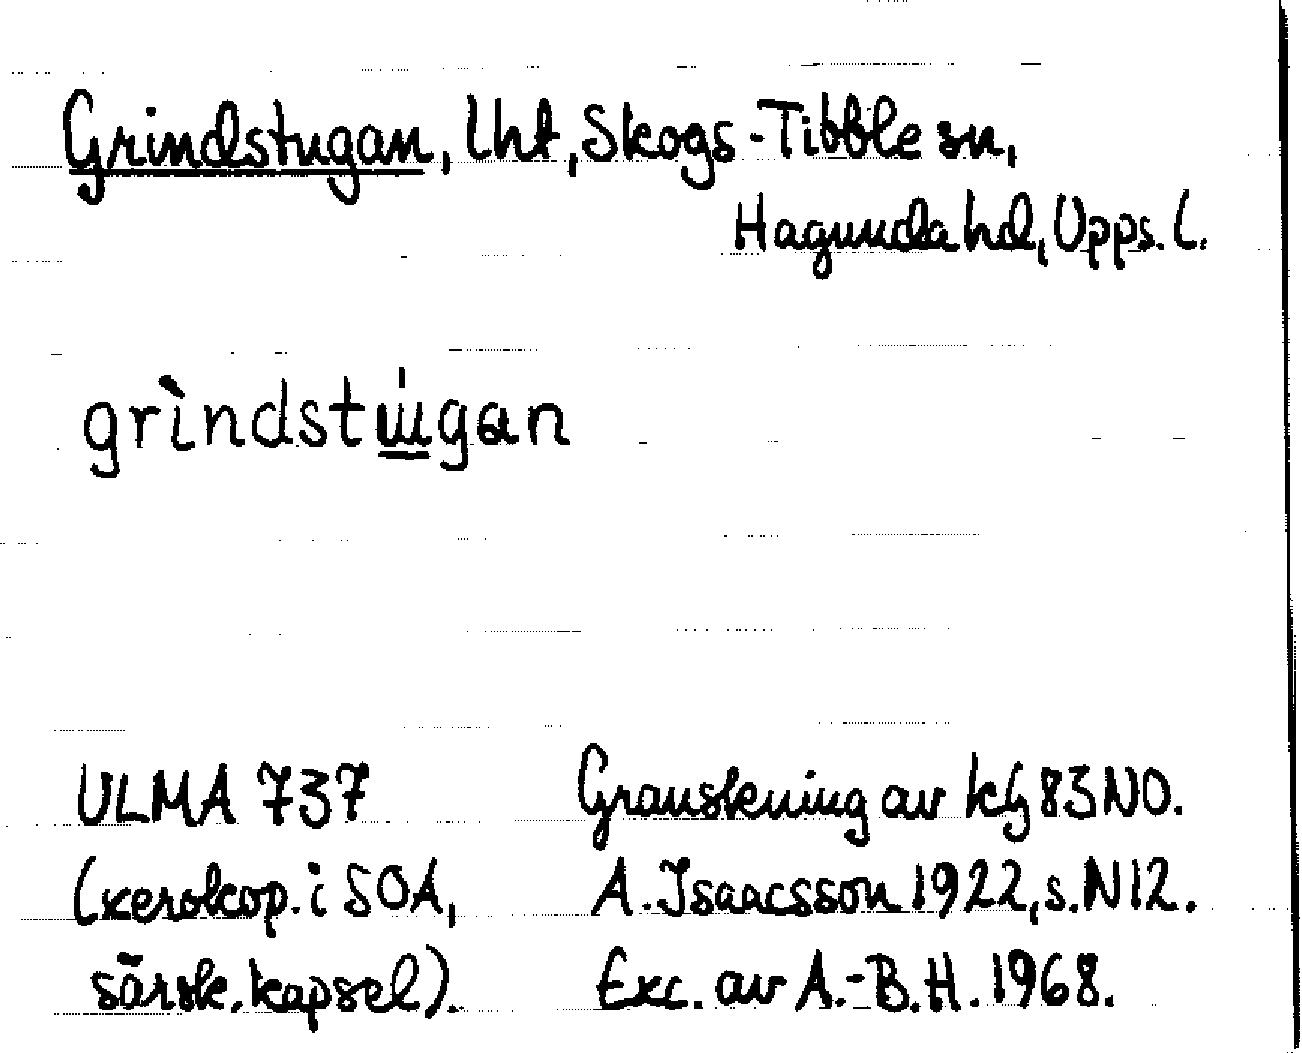 Grindstugan, lht, Skogs-Tibble sn,
Hagunda hd, Upps. l.
grìndstɯ̲́gan
ULMA 737
(xerokop. i SOA,
särsk. kapsel).
Granskning av kbl 83 NO.
A. Isaacsson 1922, s. N 12.
Exc. av A.-B.H. 1968.